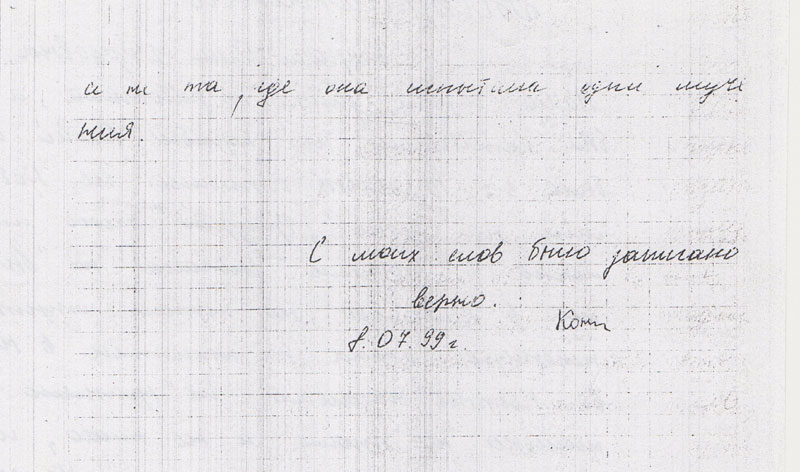 а не та, где она испытала одни муче
ния.
С моих слов было записано
верно.
8.07.99г.